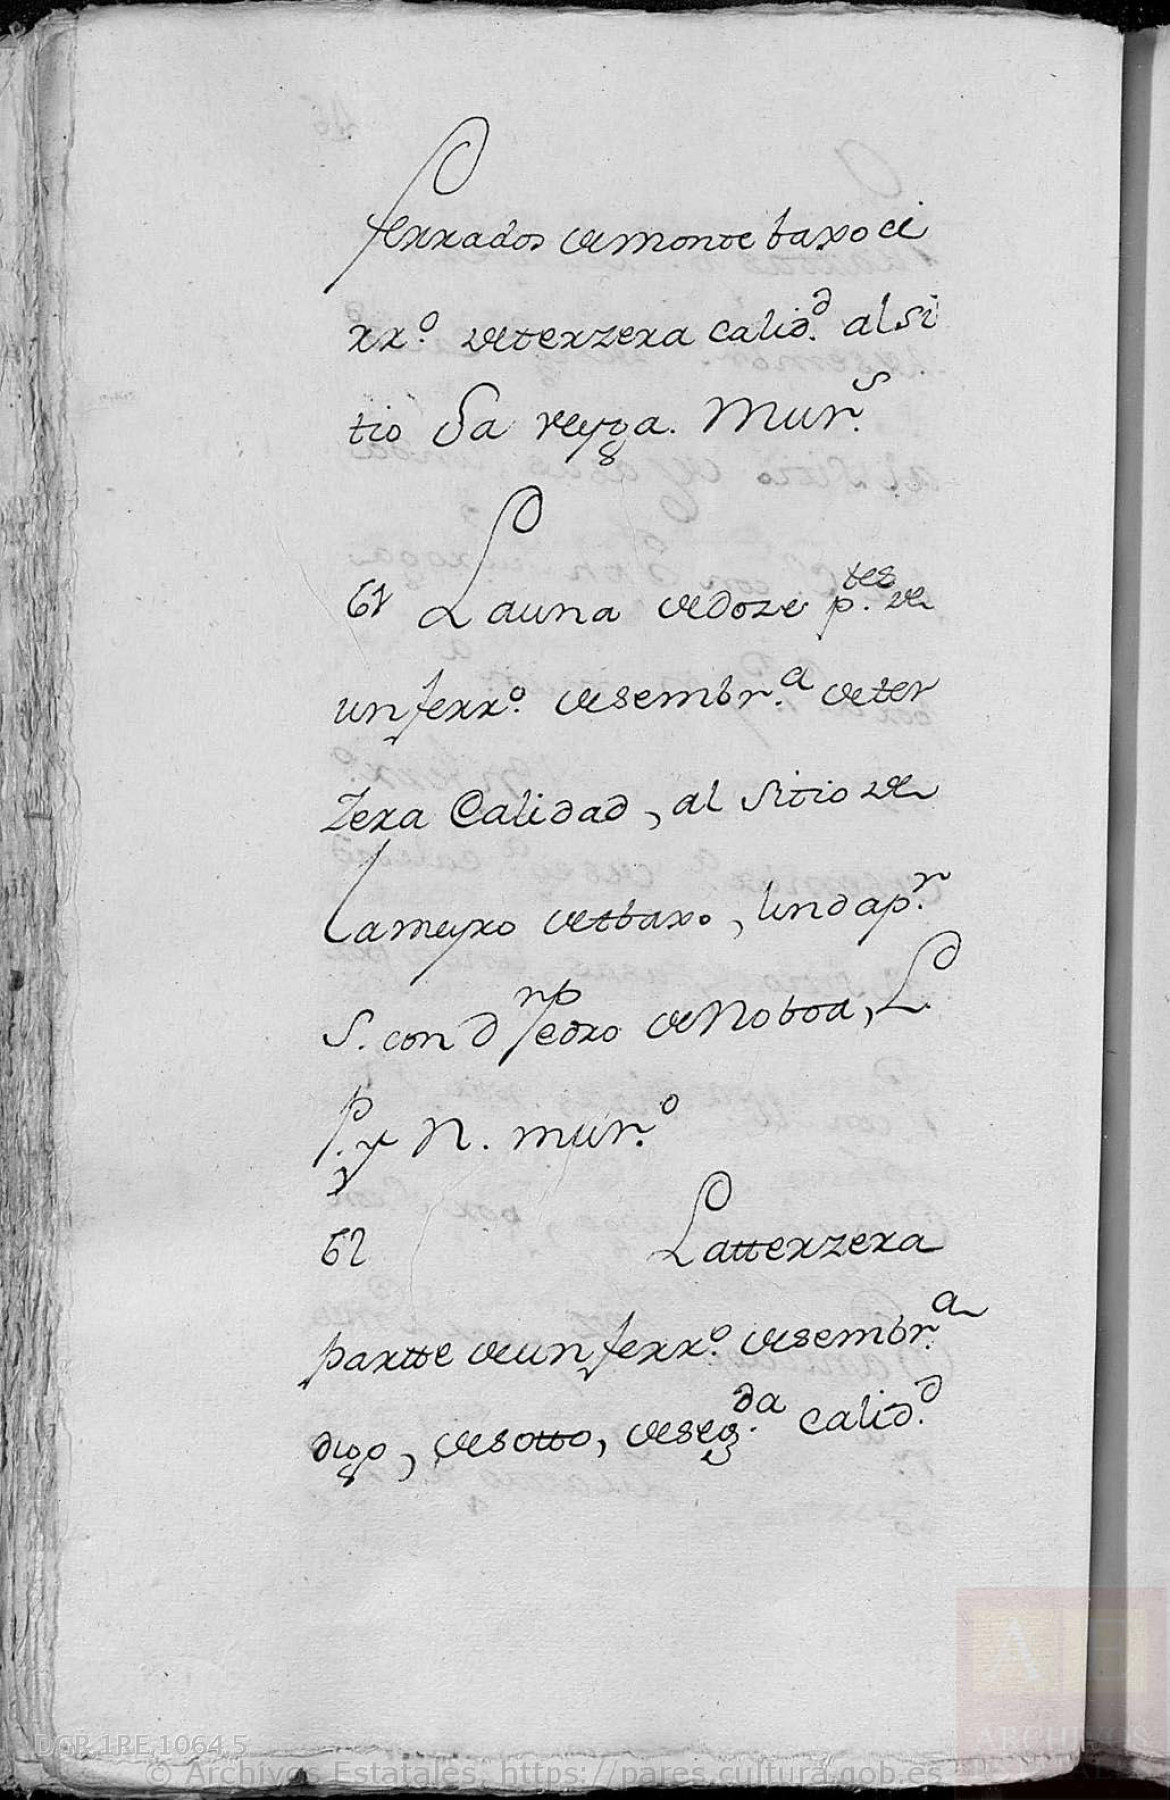 ferrados de monte baxo ci
rr.º de terzera calid.d al si
tio Da veyga. Mur.s
61 La una de doze p.tes de
un ferr.º de sembr.a de ter
zera Calidad, al sitio de
Lameyro de tbaxo, linda p.r
S. con D.n Pedro de Noboa, L.
P. y N. mur.º
62 La tterzera
partte de un ferr.º de sembr.a
digo, de sotto, de seg.da calid.d
DGP 1RE,1064,5
© Archivos Estatales, https://pares.cultura.gob.es
AE
ARCHIVOS